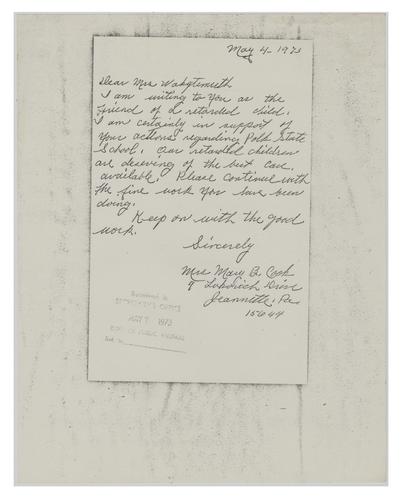 May 4-1973
Dear Mrs Wohgemuth
I am writing to you as the
friend of a retarded child.
I am certainly in support of
your actions regarding Polk State
School. Our retarded children
are deserving of the best care
available. Please continue with
the fine work you have been
doing.
Keep on with the good
work.
Sincerely
Mrs Mary B. Cook
9 Drive
Jeannette, Pa.
15644
Received in
SECRETARY'S OFFICE
MAY 7 1973
DEPT. OF PUBLIC WELFARE